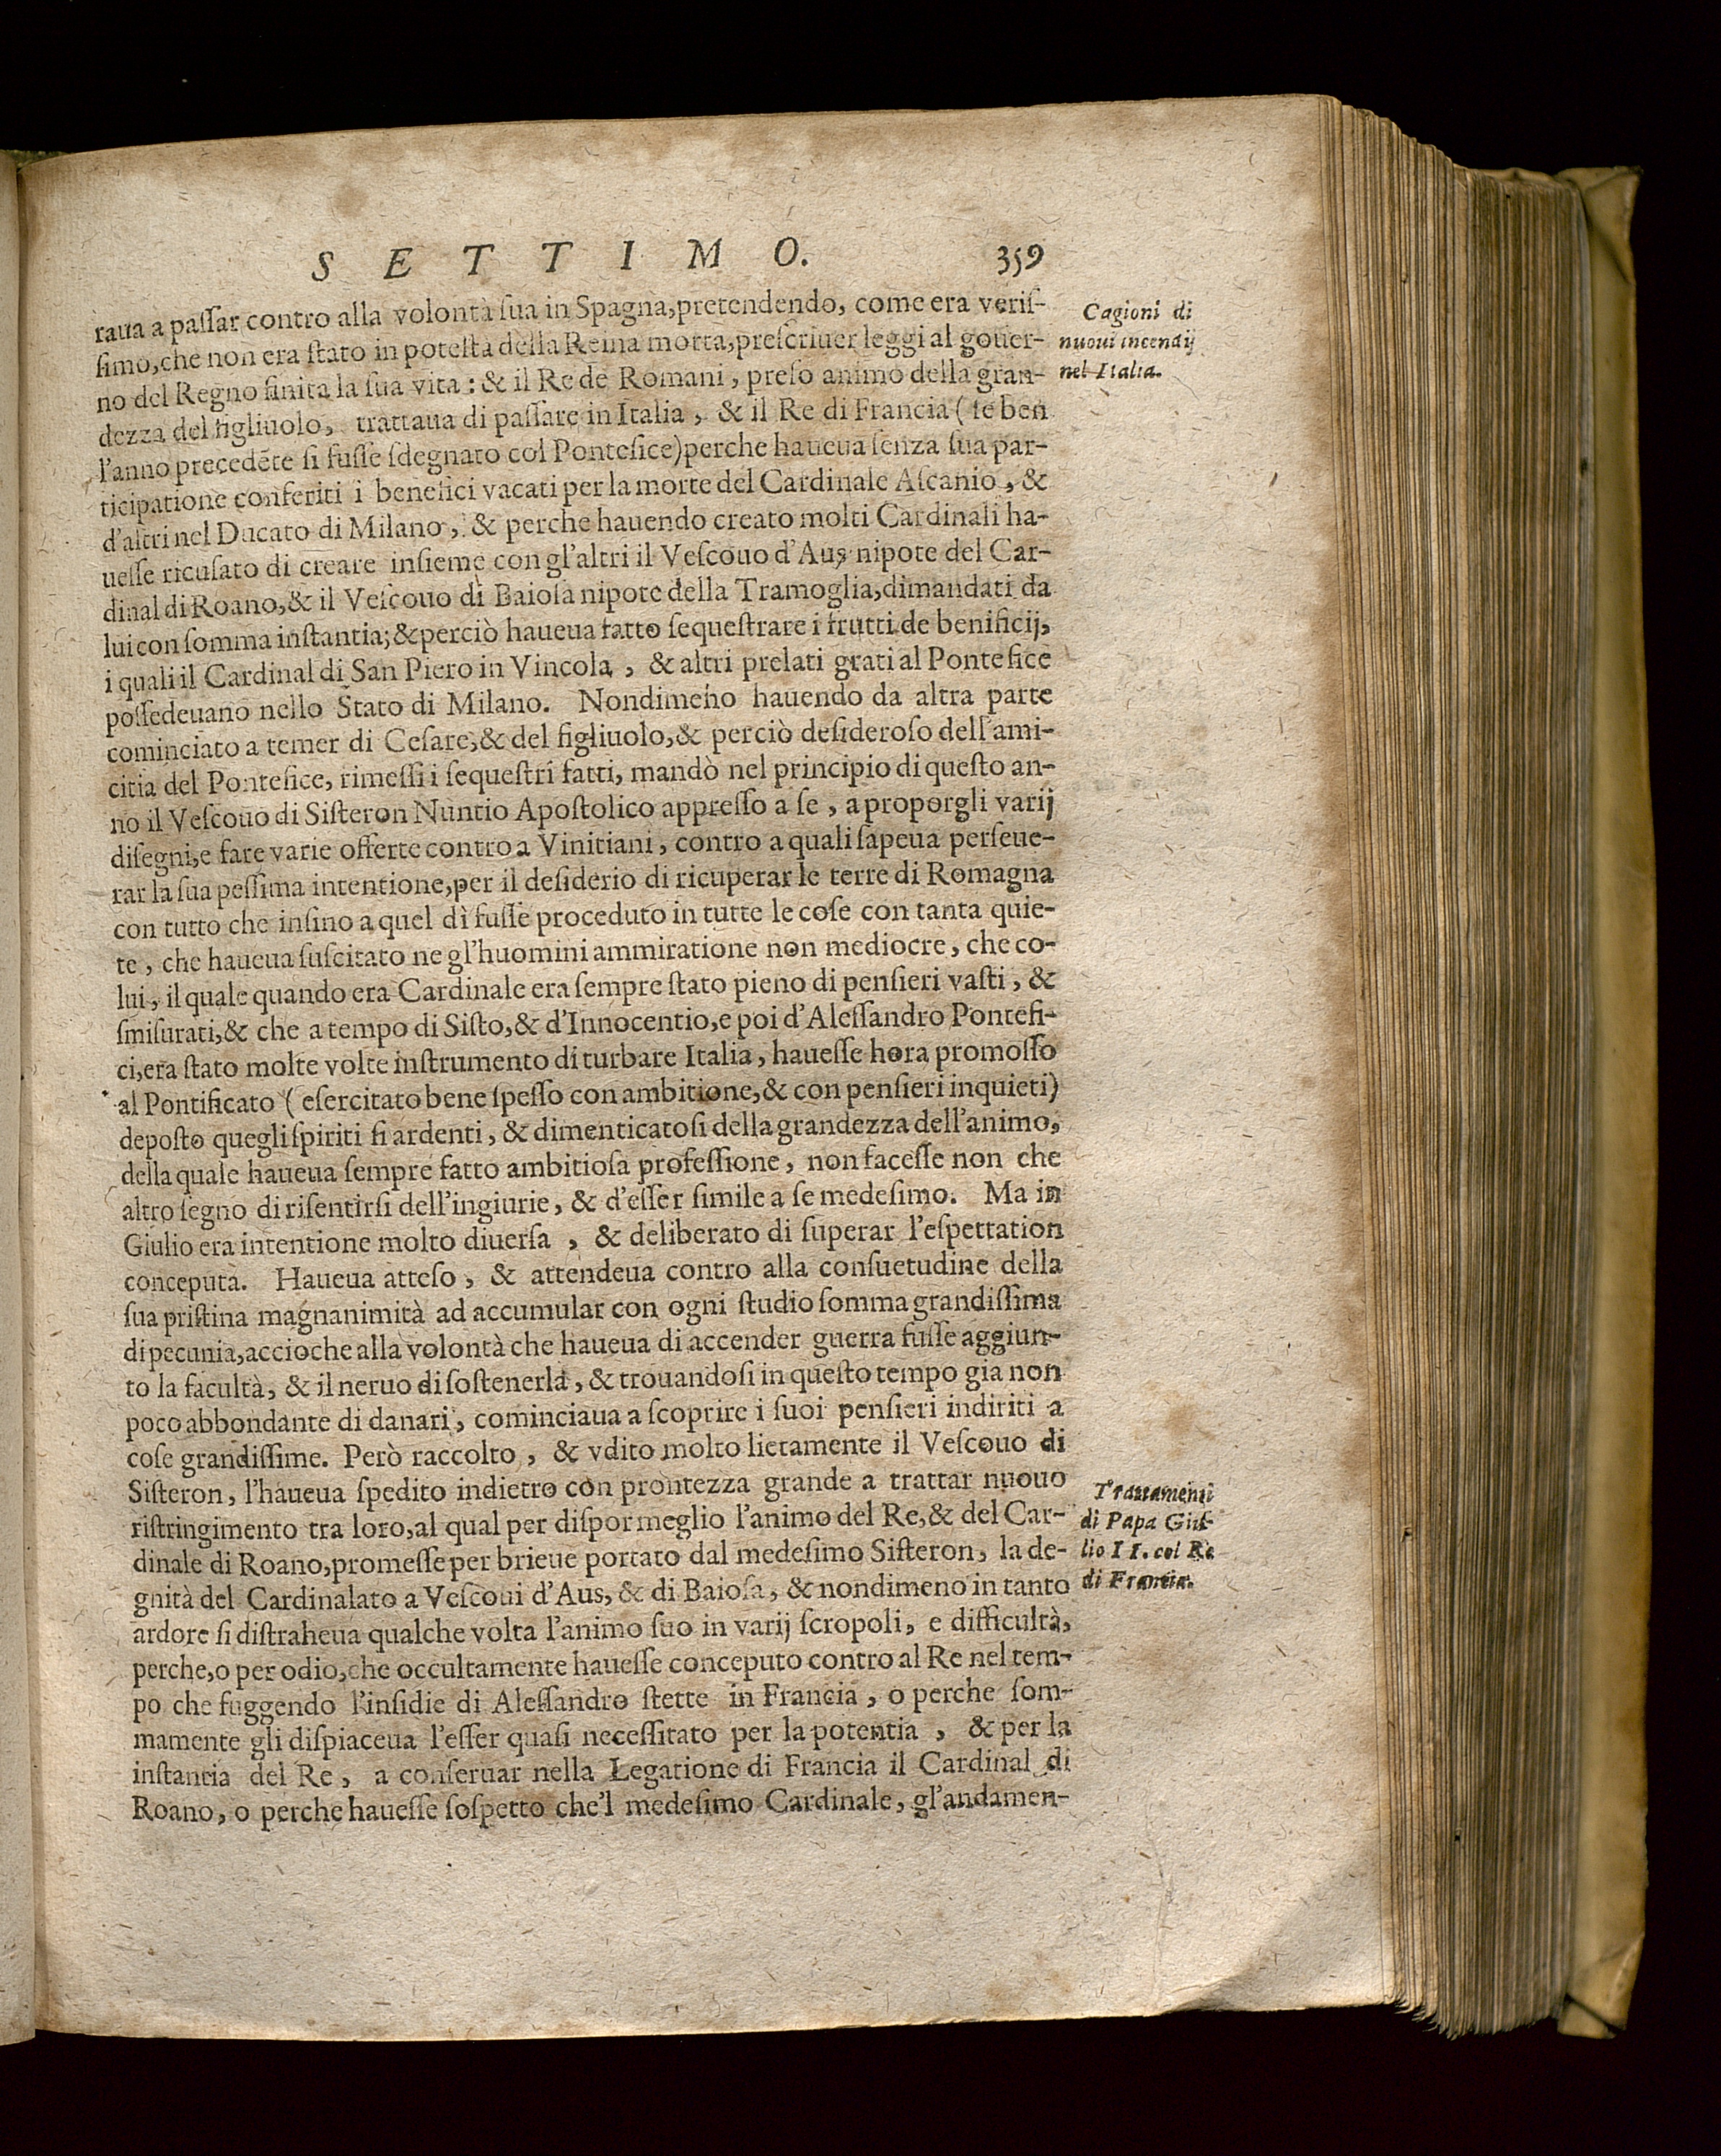 SETTIMO. 359
raua a paſſar contro alla volontà ſua in Spagna, pretendendo, come era veriſ-
ſimo, che non era ſtato in poteſtà della Reina morta, preſcriuer leggi al gouer-
no del Regno finita la ſua vita: & il Re de Romani, preſo animo della gran-
dezza del figliuolo, trattaua di paſſare in Italia, & il Re di Francia (ſe ben
l'anno precedẽte ſi fuſſe ſdegnato col Pontefice) perche haueua ſenza ſua par-
ticipatione conferiti i benefici vacati per la morte del Cardinale Aſcanio, &
d'altri nel Ducato di Milano, & perche hauendo creato molti Cardinali ha-
ueſſe ricuſato di creare inſieme con gl'altri il Veſcouo d'Aus nipote del Car-
dinal di Roano, & il Veſcouo di Baioſa nipote della Tramoglia, dimandati da
lui con ſomma inſtantia; & perciò haueua fatto ſequeſtrare i frutti de benificij,
i quali il Cardinal di San Piero in Vincola, & altri prelati grati al Pontefice
poſſedeuano nello Stato di Milano. Nondimeno hauendo da altra parte
cominciato a temer di Ceſare, & del figliuolo, & perciò deſideroſo dell'ami-
citia del Pontefice, rimeſſi i ſequeſtri fatti, mandò nel principio di queſto an-
no il Veſcouo di Siſteron Nuntio Apoſtolico appreſſo a ſe, a proporgli varij
diſegni, e fare varie offerte contro a Vinitiani, contro a quali ſapeua perſeue-
rar la ſua peſſima intentione, per il deſiderio di ricuperar le terre di Romagna
con tutto che inſino a quel dì fuſſe proceduto in tutte le coſe con tanta quie-
te, che haueua ſuſcitato ne gl'huomini ammiratione non mediocre, che co-
lui, il quale quando era Cardinale era ſempre ſtato pieno di penſieri vaſti, &
ſmiſurati, & che a tempo di Siſto, & d'Innocentio, e poi d'Aleſſandro Pontefi-
ci, era ſtato molte volte inſtrumento di turbare Italia, haueſſe hora promoſſo
al Pontificato (eſercitato bene ſpeſſo con ambitione, & con penſieri inquieti)
depoſto quegli ſpiriti ſi ardenti, & dimenticatoſi della grandezza dell'animo,
della quale haueua ſempre fatto ambitioſa profeſſione, non faceſſe non che
altro ſegno di riſentirſi dell'ingiurie, & d'eſſer ſimile a ſe medeſimo. Ma in
Giulio era intentione molto diuerſa, & deliberato di ſuperar l'eſpettation
conceputa. Haueua atteſo, & attendeua contro alla conſuetudine della
ſua priſtina magnanimità ad accumular con ogni ſtudio ſomma grandiſſima
di pecunia, accioche alla volontà che haueua di accender guerra fuſſe aggiun-
to la facultà, & il neruo di ſoſtenerla, & trouandoſi in queſto tempo gia non
poco abbondante di danari, cominciaua a ſcoprire i ſuoi penſieri indiriti a
coſe grandiſſime. Però raccolto, & vdito molto lietamente il Veſcouo di
Siſteron, l'haueua ſpedito indietro con prontezza grande a trattar nuouo
riſtringimento tra loro, al qual per diſpor meglio l'animo del Re, & del Car-
dinale di Roano, promeſſe per brieue portato dal medeſimo Siſteron, la de-
gnità del Cardinalato a Veſcoui d'Aus, & di Baioſa, & nondimeno in tanto
ardore ſi diſtraheua qualche volta l'animo ſuo in varij ſcropoli, e difficultà,
perche, o per odio, che occultamente haueſſe conceputo contro al Re nel tem-
po che fuggendo l'inſidie di Aleſſandro ſtette in Francia, o perche ſom-
mamente gli diſpiaceua l'eſſer quaſi neceſſitato per la potentia, & per la
inſtantia del Re, a conſeruar nella Legatione di Francia il Cardinal di
Roano, o perche haueſſe ſoſpetto che'l medeſimo Cardinale, gl'andamen-
Cagioni di
nuoui incendij
nel Italia.
Trattamenti
di Papa Giu-
lio II. col Re
di Francia.